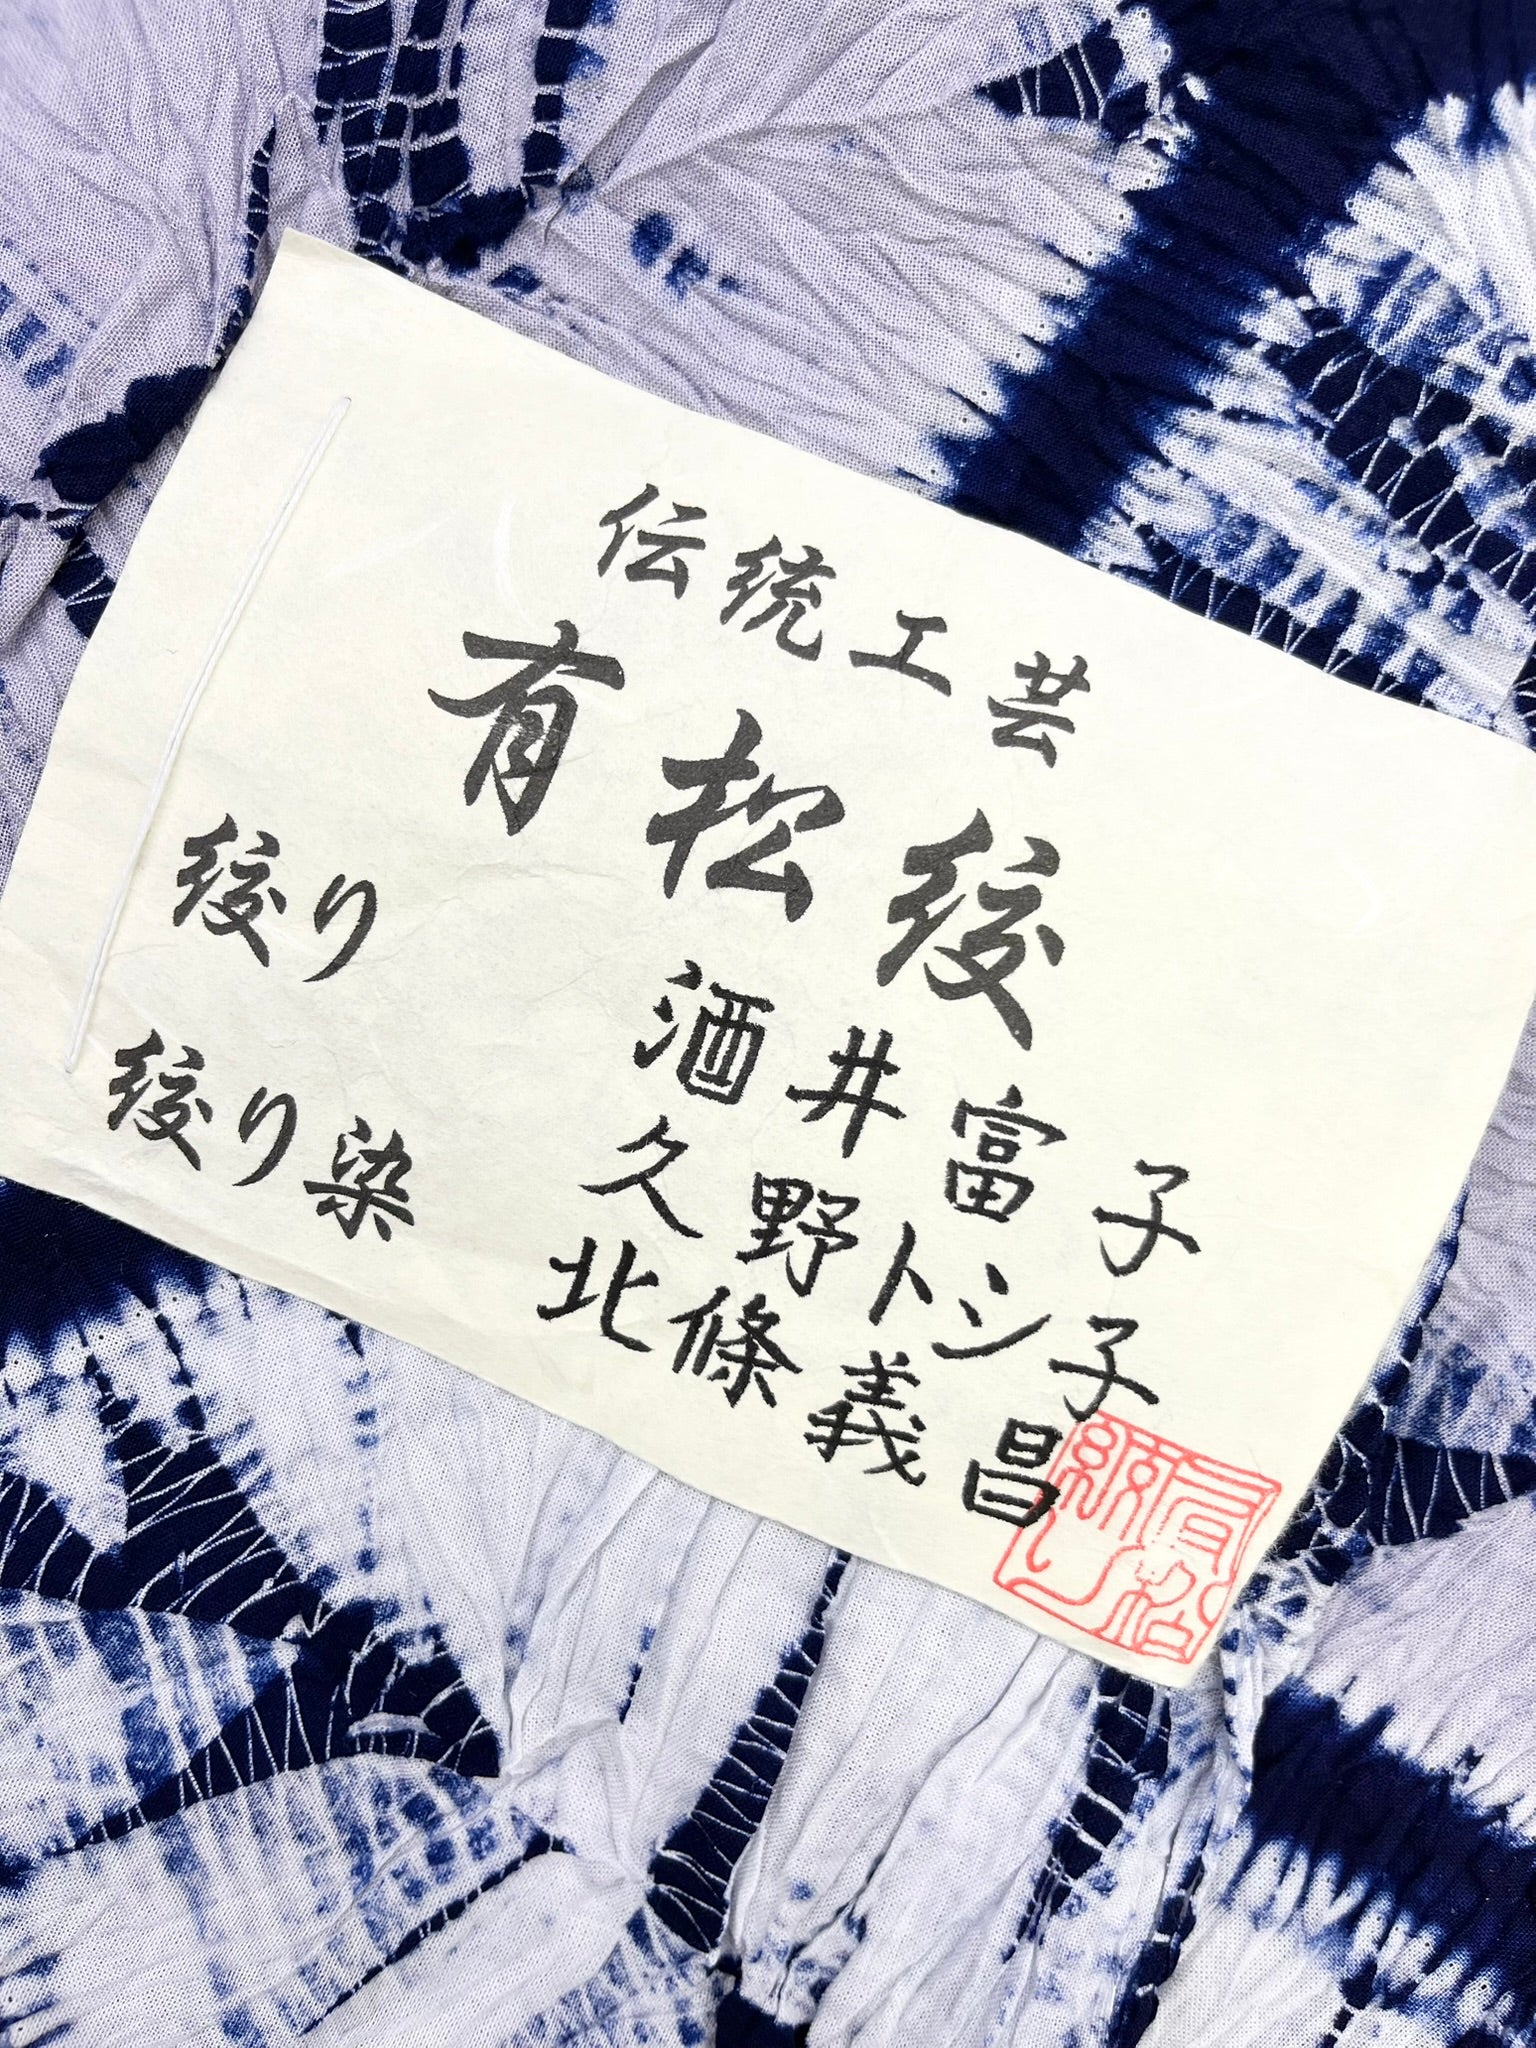 伝統工芸
有松絞
絞り 酒井富子
久野トシ子
絞り染 北條義昌
有松
絞